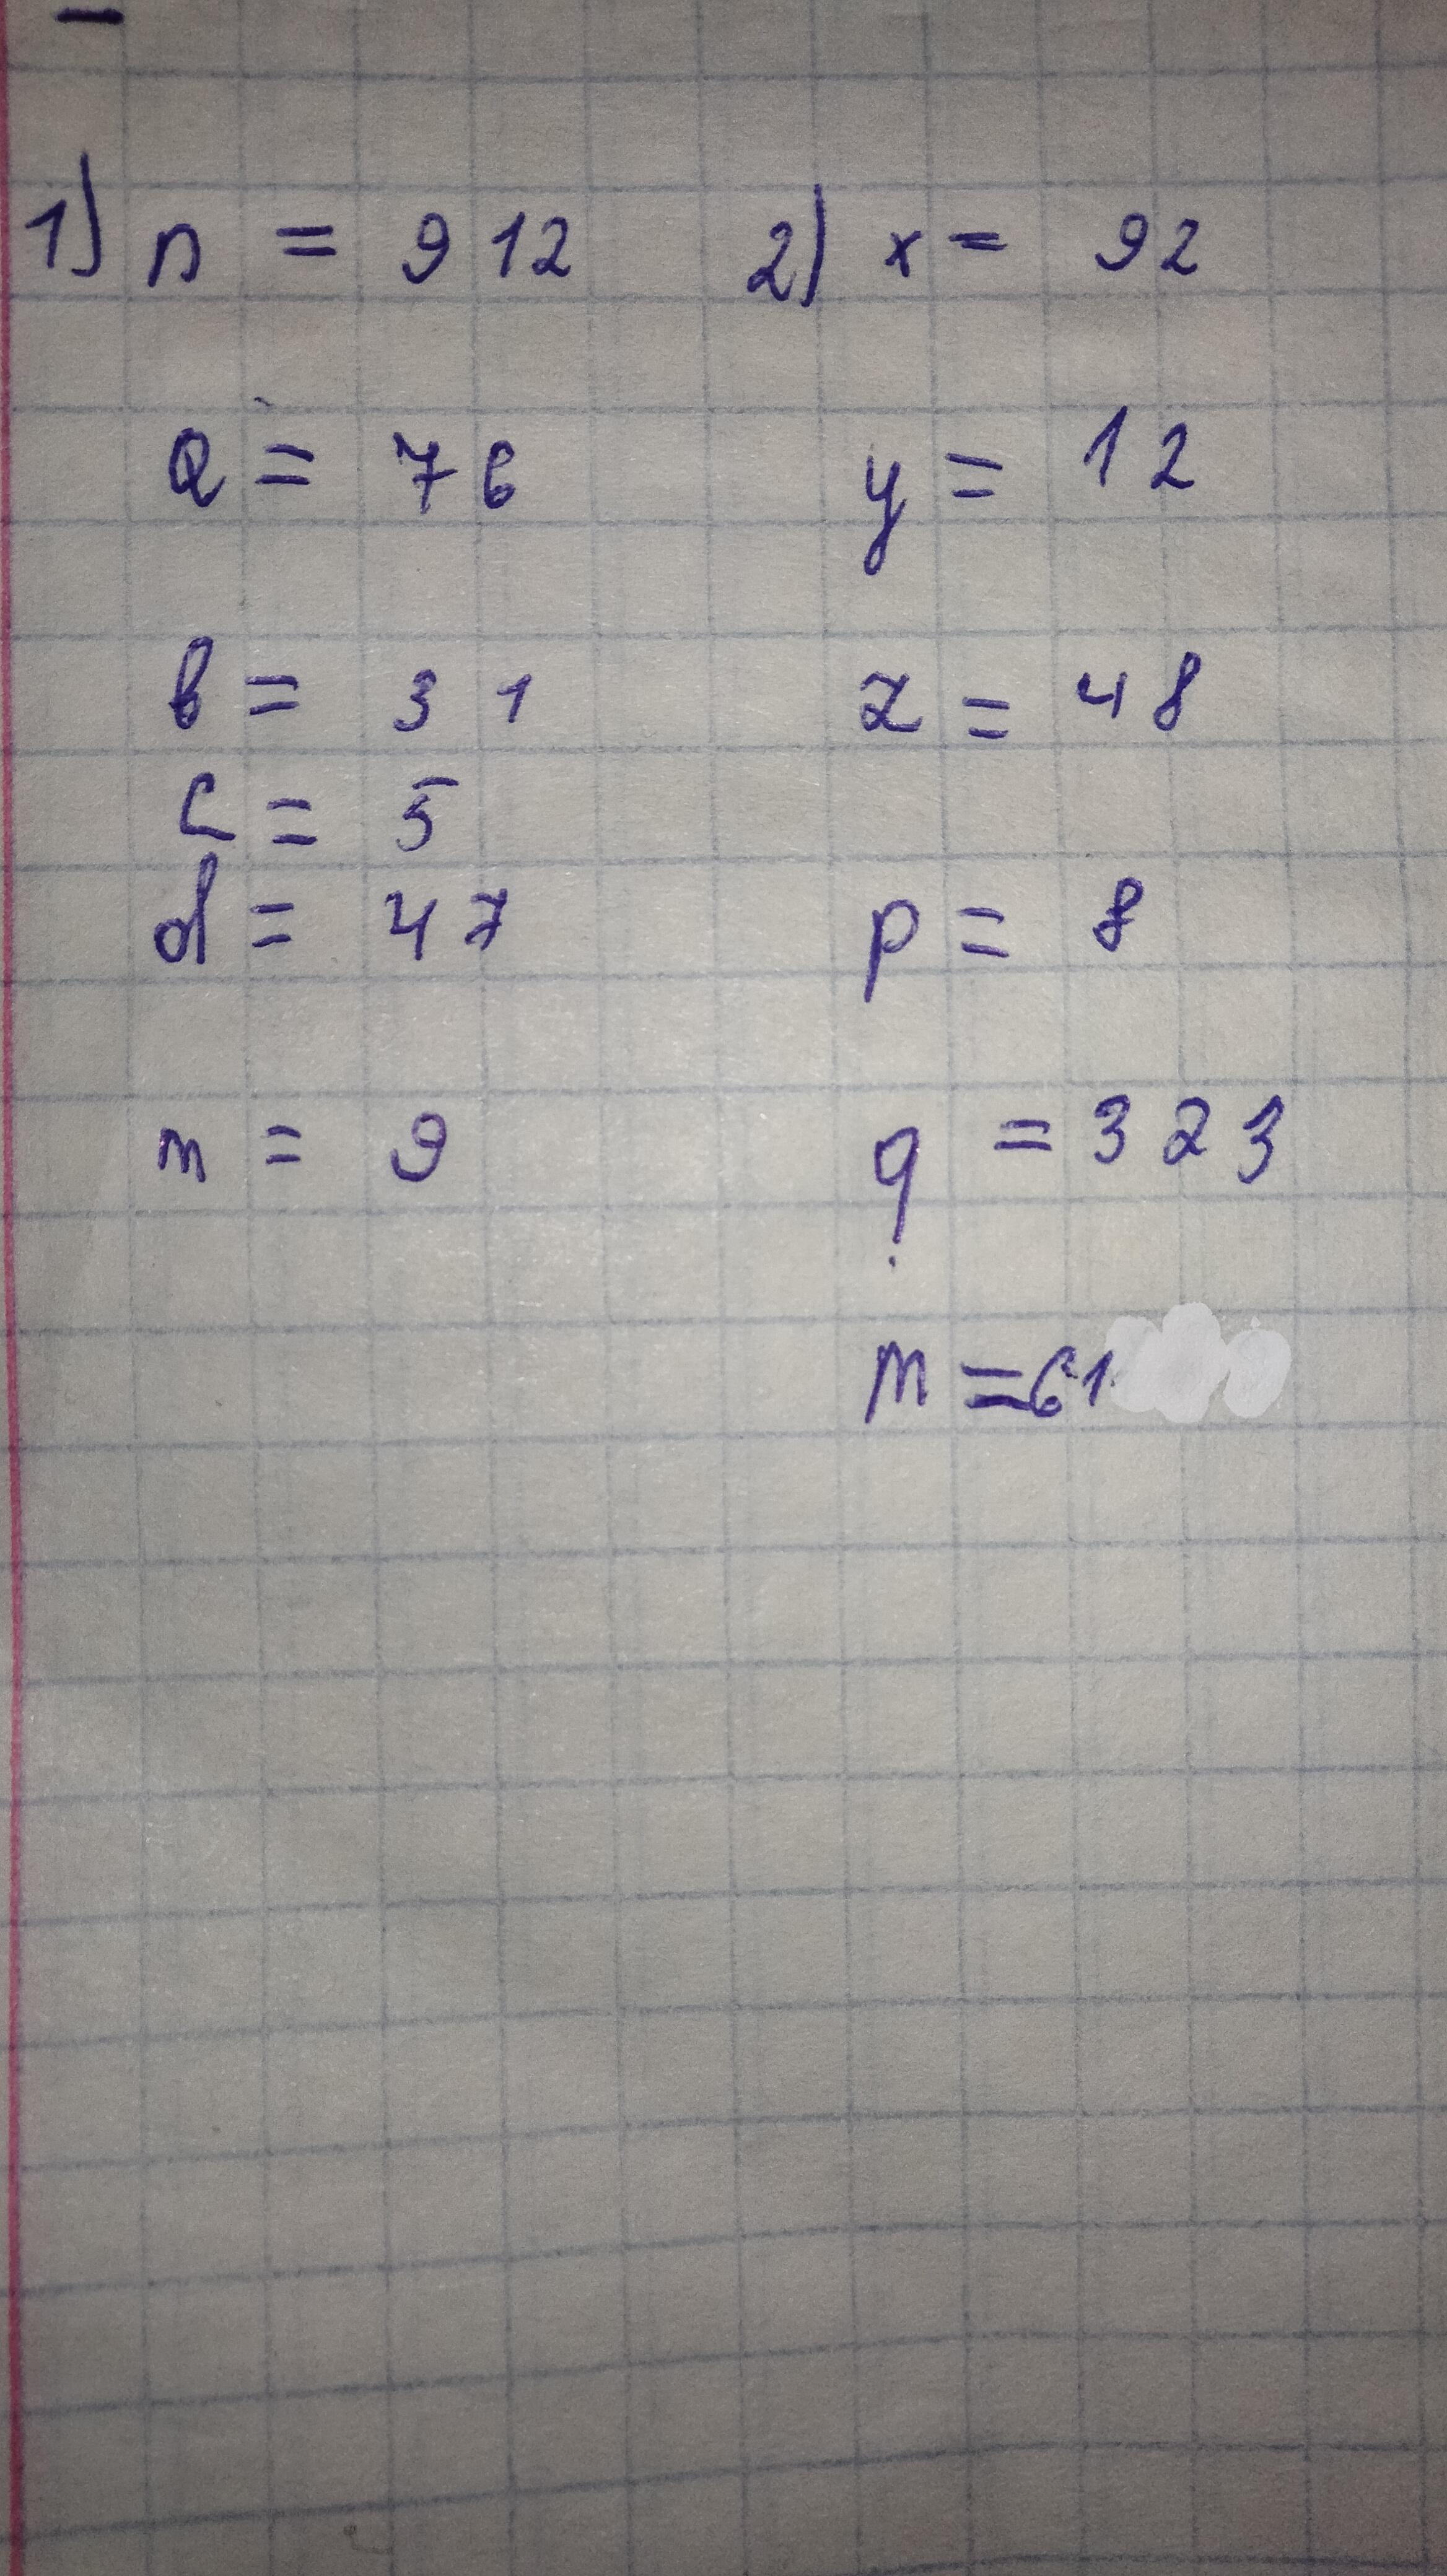 1) n = 912 2) x = 92
a = 76 y = 12
b = 31 z = 48
c = 5
d = 47 p = 8
m = 9 q = 323
m = 61